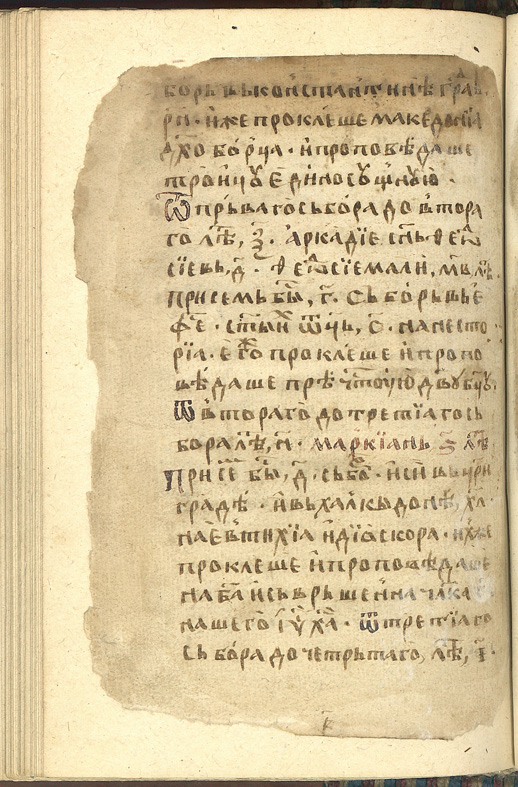 борь вь константїнѣ градѣ
ри · иже проклеше македонїа
дх҃оборца · и проповѣдаше
троицꙋ единосꙋщнꙋю ·
Ѿ прьваго сьбора до втора
го лѣ̑, ѯ҃ · аркадїе сн҃ь ѳеѡ
сїевь, д҃ · ѳеѡсїе мали, мв҃ лѣ
при семь бы̑, г҃ · сьборь вь е
фе · ст҃ыи ѿць, с҃ · на несто
рїа · его проклеше и пропо
вѣдаше прѣчт҃ꙋю дв҃ꙋ бц҃ꙋ,
ѿ втораго до третїаго сь
бора лѣ̑, н҃ · маркїань ѕ҃ лѣ
При се бы̑, д҃ · сьбо · иси вь цри
градѣ · и вь халкидонѣ, хл҃ ·
на евтихїа и дїоскора · ихже
проклеше и проповѣдаше
на ба҃ и сьврьшенна чл҃ка
нашего і҃ꙋ х҃а · ѿ третїаго
сьбора до четрьтаго, лѣ̑,